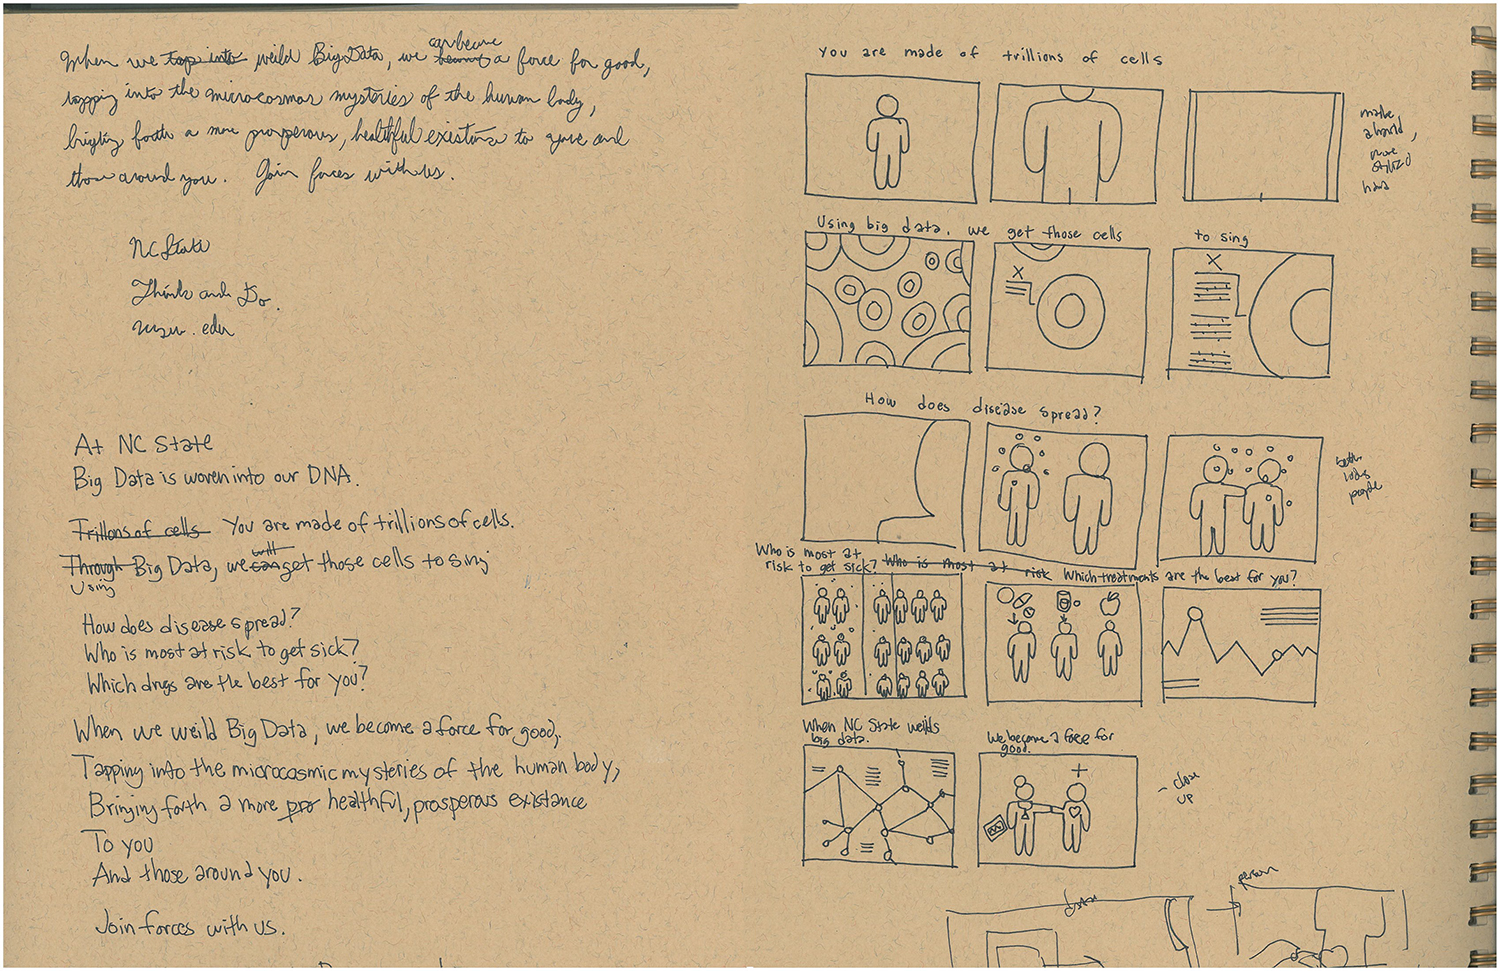 When we tap into weild Big Data, we can become a force for good,
tapping into the microcosmos mysteries of the human body,
forth a more prosperous, healthful to you and
those around you. Join forces with us.
NC State
Think and Do.
ncsu.edu
At NC State
Big Data is woven into our DNA.
Trillons of cells You are made of trillions of cells.
Through Using Big Data, we can will get those cells to sing
How does disease spread?
Who is most at risk to get sick?
Which drugs are the best for you?
When we weild Big Data, we become a force for good,
Tapping into the microcosmic mysteries of the human body,
Bringing forth a more pro healthful, prosperous existance
To you
And those around you.
Join forces with us.
You are made of trillions of cells
make
more
Using big data, we get those cells to sing
X
X
How does disease spread?
people
Who is most at
risk to get sick? Who is most at risk Which treatments are the best for you?
When NC State weilds
big data.
We become a force for
good.
- close
up
person